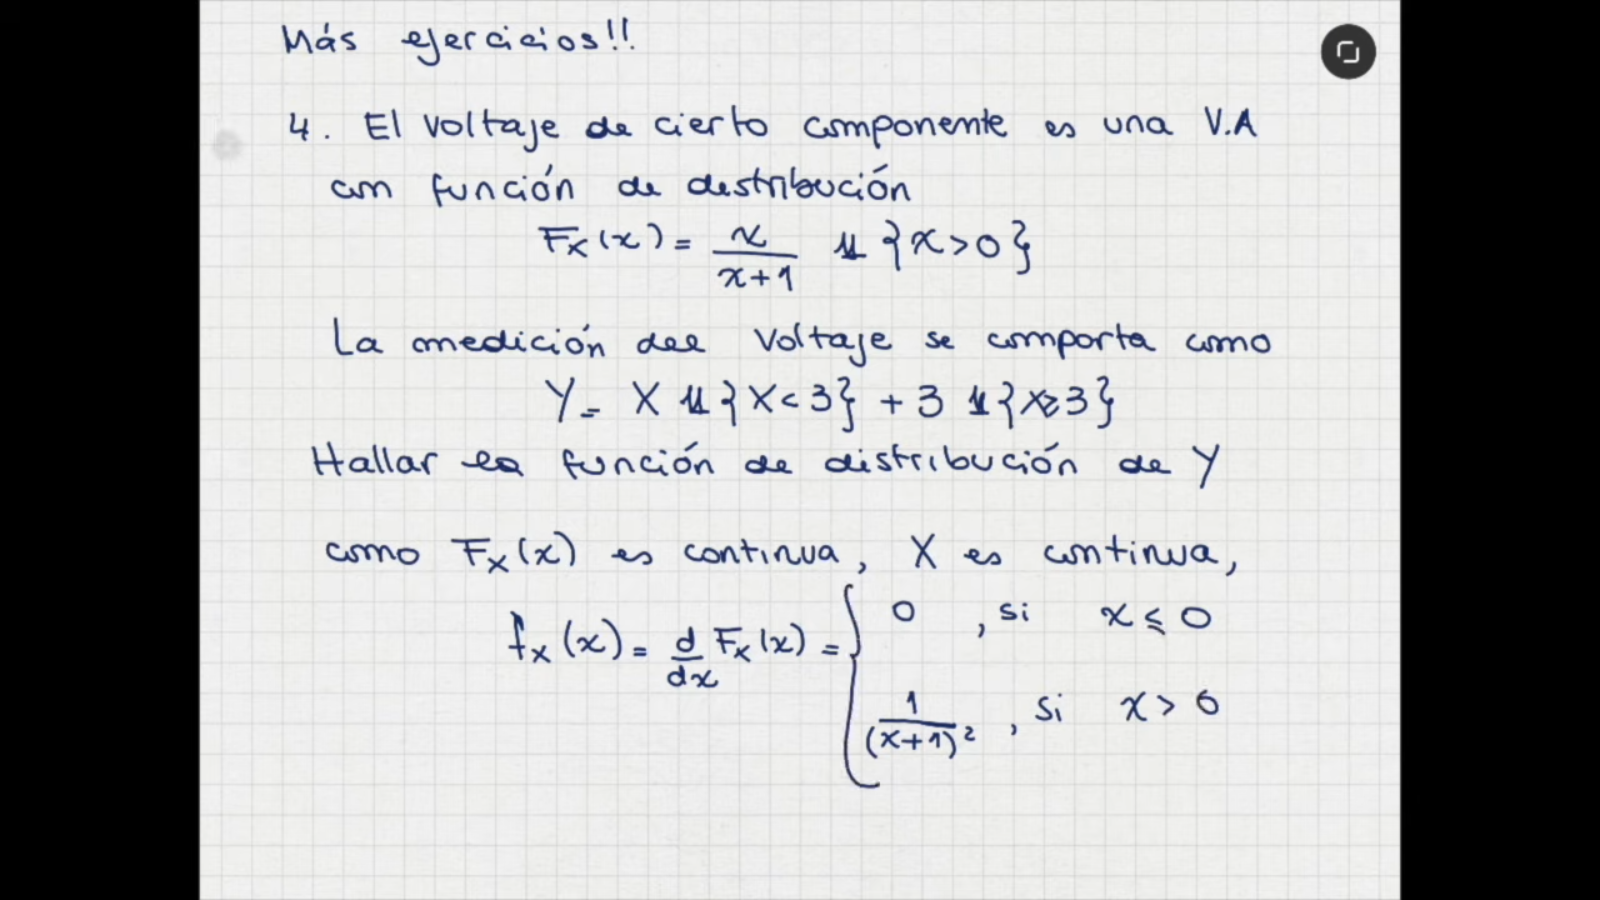 Más ejercicios!!
4. El voltaje de cierto componente es una V.A
con función de destribución
Fx(x) = x/(x+1) 𝟙{x>0}
La medición del voltaje se comporta como
Y = X 𝟙{X<3} + 3 𝟙{X≥3}
Hallar la función de distribución de Y
como Fx(x) es continua, X es continua,
fx(x) = d/dx Fx(x) = { 0 , si x ≤ 0
1/(x+1)² , si x > 0